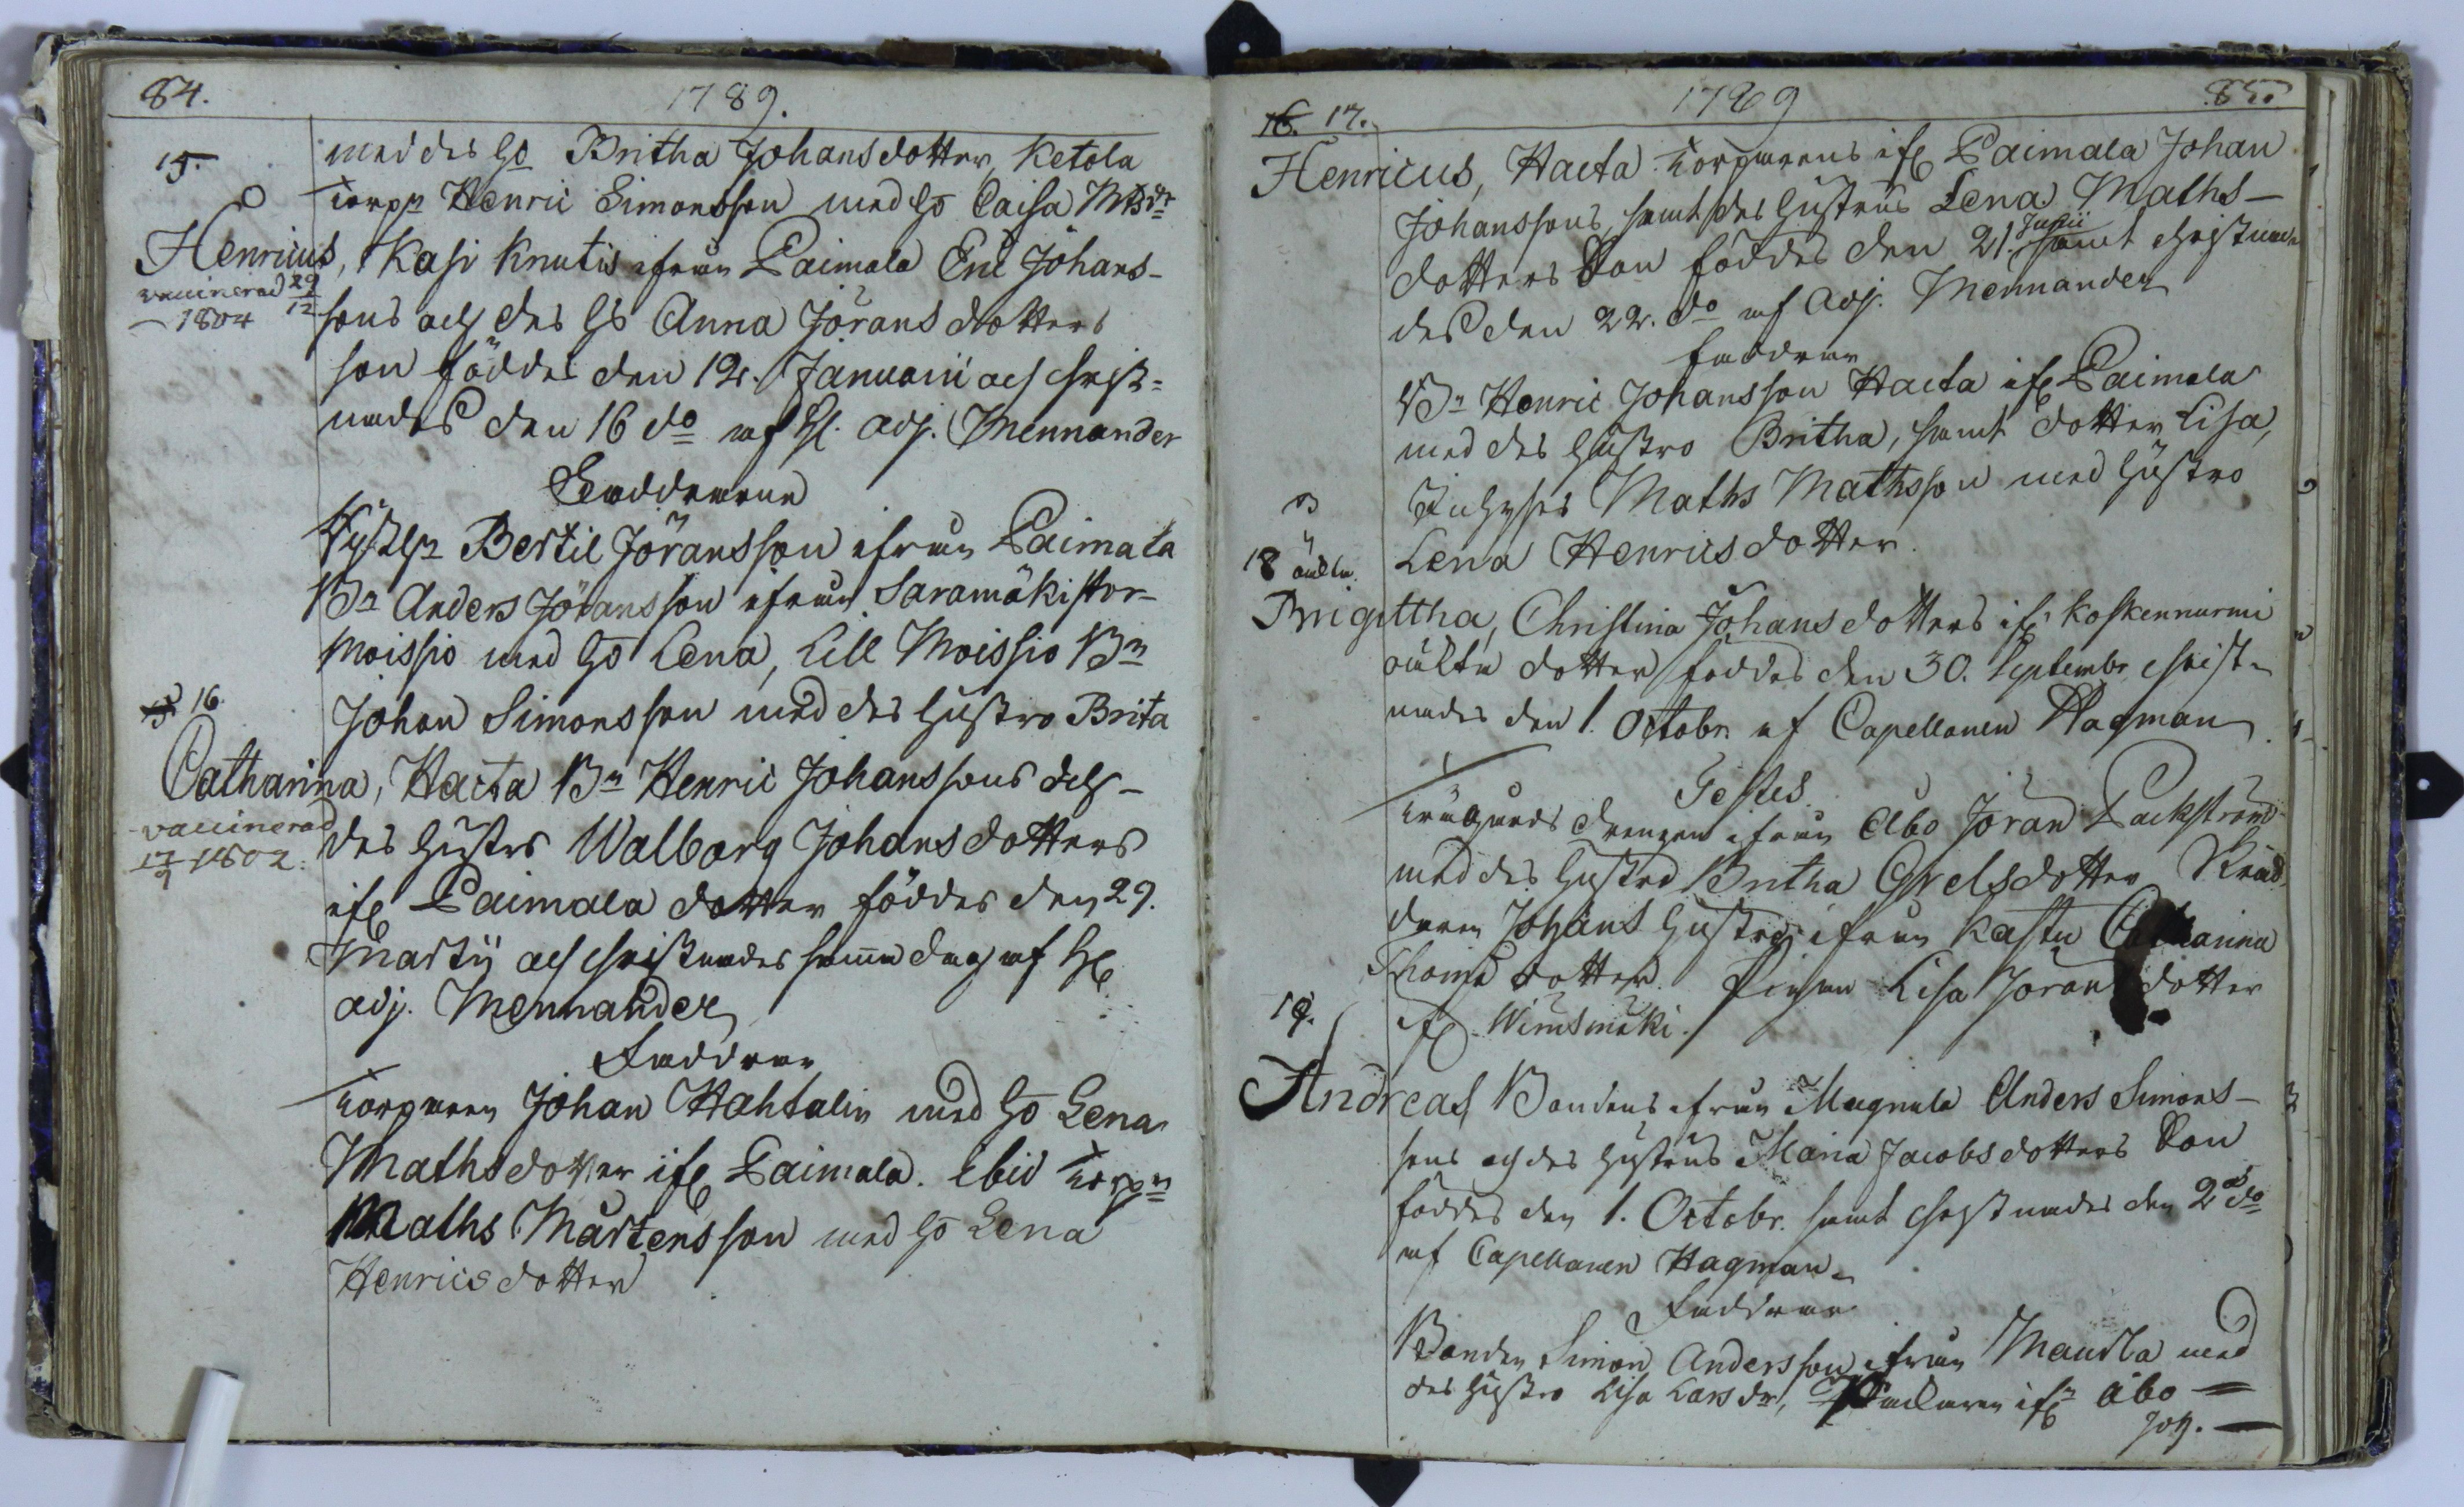 84.
1789.
med des Ho Britha Johansdotter, Ketola
15.
Torpn Henric Simonsson med ho Caisa
Henricus, Kasi Knutis ifrån Paimala Eric Johans-
vaccinerad 29/12
1804
sons och des Hs Anna Jörans dotters
son föddes den 12. Januarii och christ=
nades den 16 do af H. adj. Mennander
Faddrarne
Bertil Jöransson ifrån Paimala
Bn Anders Jöransson ifrån Saramäki stor-
Moissio med ho Lena, Lill Moissio Bn
16.
Johan Simonsson med des hustro Brita
Catharina, Hacta Bn Henric Johanssons och-
vaccinerad
des hustrs Walborg Johansdotters
17/9 1802.
ifr Paimala dotter föddes den 29.
Martii och christnades samma dag af H
adj. Mennander
Faddrar
Torparen Johan Hahtalin med ho Lena
Mathsdotter ifr Paimala. Ibid Torpn
Maths Mårtensson med ho Lena
Henricsdotter
1789
85.
16. 17.
Henricus, Hacta Torparens ifr Paimala Johan
Johanssons, samt des hustrus Lena Maths-
dotters Son föddes den 21. Junii samt christna-
des den 22. do af Adj. Mennander
Faddrar
Bn Henric Johansson Hacta ifr Paimala
med des hustro Britha, samt dotter Lisa,
Inhyses Maths Mathsson med hustro
Lena Henricsdotter.
18 oäkta.
Brigittha, Christina Johansdotters ifr Koskennurmi
oäkta dotter föddes den 30. Septembr christ-
nades den 1. Octobr af Capellanen Hagman.
Testes.
drengen ifrån Åbo Jöran Packström
med des hustro Britha Grelsdotter
Johans hustro ifrån Kastu Catharina
Thomæ dotter. Pigan Lisa Jöransdotter
19.
ifr Wirusmäki.
Andreas Bondens ifrån Magnula Anders Simons-
sons och des hustrus Maria Jacobsdotters Son
föddes den 1. Octobr. samt christnades den 2 do
af Capellanen Hagman.
Faddrar
Bonden Simon Andersson ifrån Maurla med
des hustro Lisa Larsdr, ifr Åbo
Joh.